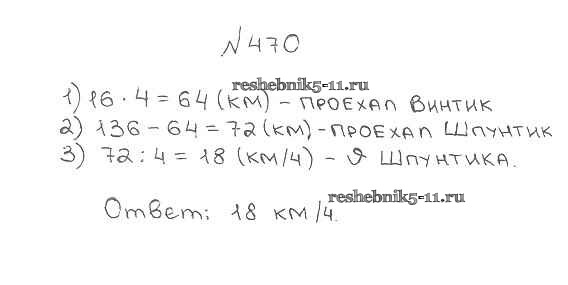 №470
reshebnik5-11.ru
1) 16 · 4 = 64 (км) – проехал Винтик
2) 136 – 64 = 72 (км) – проехал Шпунтик
3) 72 : 4 = 18 (км/ч) – v Шпунтика.
reshebnik5-11.ru
Ответ: 18 км/ч.